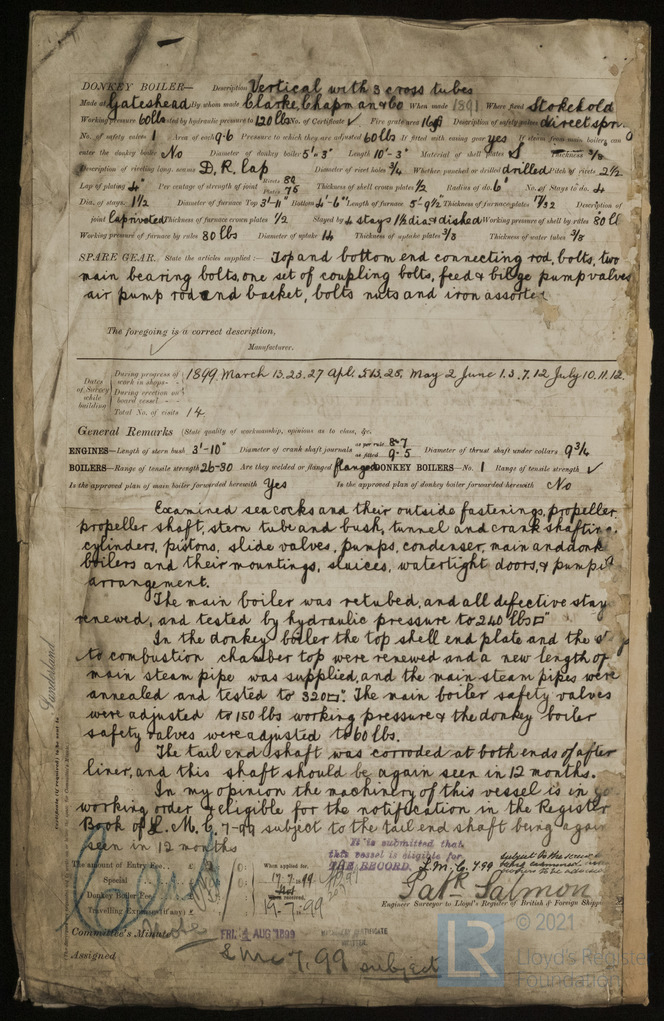 DONKEY BOILER— Description Vertical with 3 cross tubes
Made at Gateshead By whom made Clarke, Chapman & Co When made 1891 Where fixed Stokehold
Working Pressure 60lbs tested by hydraulic pressure to 120 lbs No. of Certificate ✓ Fire grate area Description of safety valves direct spri
No. of safety valves 1 Area of each 9.6 Pressure to which they are adjusted 60 lbs If fitted with easing gear yes If steam from main boilers can
enter the donkey boiler No Diameter of donkey boiler 5'-3" Length 10'-3" Material of shell plates S Thickness
Description of riveting long. seams D. R. lap Diameter of rivet holes 3/4 Whether punched or drilled drilled Pitch of rivets 2 1/2
Lap of plating 4" Per centage of strength of joint Rivets 82 Plates 75 Thickness of shell crown plates 1/2 Radius of do. 6' No. of Stays to do. 4
Dia. of stays. 1 1/2 Diameter of furnace Top 3'-11" Bottom 4'-6" Length of furnace 5'-9 1/2 Thickness of furnace plates 17/32 Description of
joint lap riveted Thickness of furnace crown plates 1/2 Stayed by 4 stays 1 1/2 dia & dished Working pressure of shell by rules 80 ll
Working pressure of furnace by rules 80 lbs Diameter of uptake 14 Thickness of uptake plates 3/8 Thickness of water tubes 3/8
SPARE GEAR. State the articles supplied:— Top and bottom end connecting rod, bolts, two
main bearing bolts, one set of coupling bolts, feed & bilge pump valves
air pump rod and bucket, bolts nuts and iron assorted
The foregoing is a correct description,
Manufacturer.
Dates of Survey while building
During progress of work in shops-- 1899. March 13.23.27 Apl. 5.13.25. May 2 June 1.3.7.12 July 10.11.12.
During erection on board vessel ---
Total No. of visits 14
General Remarks (State quality of workmanship, opinions as to class, &c.
ENGINES—Length of stern bush 3'-10" Diameter of crank shaft journals as per rule 8.7 as fitted 9.5 Diameter of thrust shaft under collars 9 3/4
BOILERS—Range of tensile strength 26-30 Are they welded or flanged flanged DONKEY BOILERS—No. 1 Range of tensile strength ✓
Is the approved plan of main boiler forwarded herewith Yes Is the approved plan of donkey boiler forwarded herewith No
Examined sea cocks and their outside fastenings, propeller
propeller shaft, stern tube and bush, tunnel and crank shafting.
cylinders, pistons, slide valves, pumps, condenser, main and donk
boilers and their mountings, sluices, watertight doors, & pumping
arrangement.
The main boiler was retubed, and all defective stay
renewed, and tested by hydraulic pressure to 240 lbs □"
In the donkey boiler the top shell end plate and the
to combustion chamber top were renewed and a new length of
main steam pipe was supplied, and the main steam pipes were
annealed and tested to 320 □". The main boiler safety valves
were adjusted to 150 lbs working pressure & the donkey boiler
safety valves were adjusted to 60 lbs.
The tail end shaft was corroded at both ends of after
liner, and this shaft should be again seen in 12 months.
In my opinion the machinery of this vessel is in go
working order & eligible for the notification in the Register
Book of L. M. C. 7-99 subject to the tail end shaft being again
seen in 12 months
It is submitted that
this vessel is eligible for
THE RECORD. L.M.C. 7.99
The amount of Entry Fee. . £
Special . . £
Donkey Boiler Fee . . £
Travelling Expenses (if any) £
When applied for, 17.7.99
When received, 19.7.99
Patk Salmon
Engineer Surveyor to Lloyd's Register of British & Foreign Shipping
Committee's Minute FRI. 4 AUG 1899
MACHINERY CERTIFICATE
WRITTEN.
Assigned LMC 7.99 subject
Sunderland
© 2021
LR
Lloyd's Register
Foundation